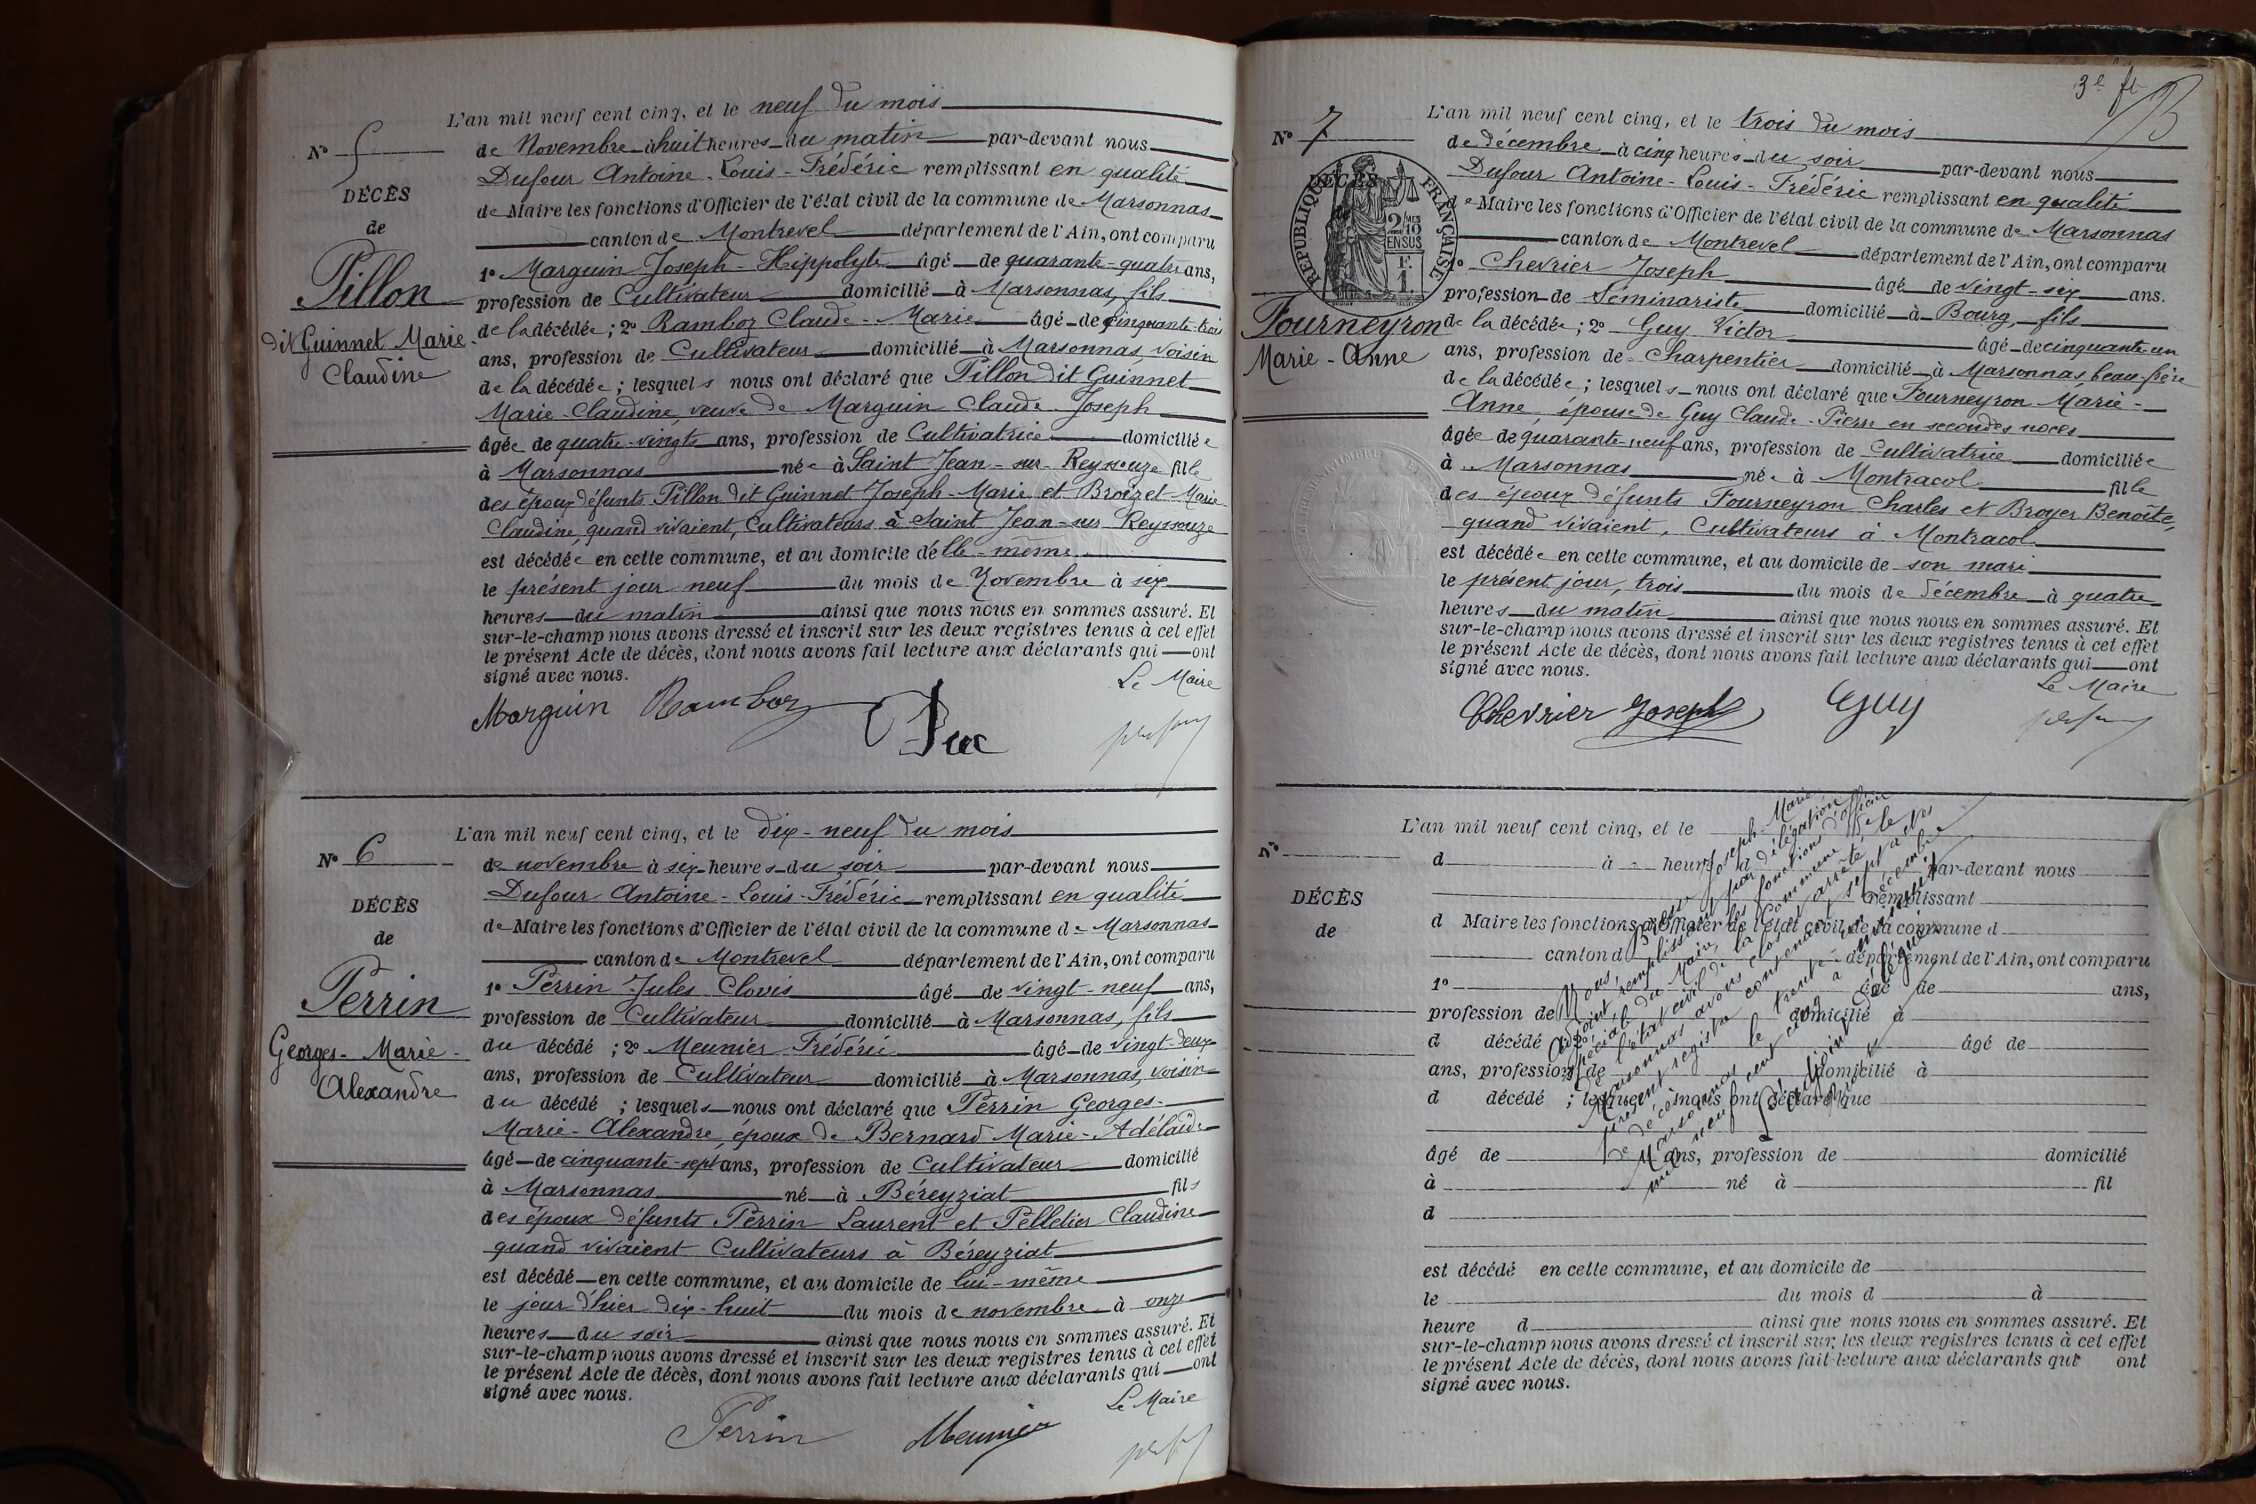 L'an mil neuf cent cinq, et le neuf du mois
N° 5
de Novembre à huit heures du matin par-devant nous
Dufour Antoine-Louis-Frédéric remplissant en qualité
DÉCÈS
de Maire les fonctions d'Officier de l'état civil de la commune de Marsonnas
de
canton de Montrevel département de l'Ain, ont comparu
Pillon
1° Marguin Joseph-Hippolyte âgé de quarante-quatre ans,
profession de Cultivateur domicilié à Marsonnas, fils
dit Guinnet Marie-
Claudine
de la décédée ; 2° Ramboz Claude-Marie âgé de cinquante-trois
ans, profession de Cultivateur domicilié à Marsonnas, voisin
de la décédée ; lesquels nous ont déclaré que Pillon dit Guinnet
Marie-Claudine, veuve de Marguin Claude Joseph
âgée de quatre-vingts ans, profession de Cultivatrice domiciliée
à Marsonnas née à Saint Jean-sur-Reyssouze fille
des époux défunts Pillon dit Guinnet Joseph-Marie et Broizet Marie-
Claudine, quand vivaient, Cultivateurs à Saint Jean-sur-Reyssouze
est décédée en cette commune, et au domicile d'elle-même
le présent jour neuf du mois de Novembre à six
heures du matin ainsi que nous nous en sommes assuré. Et
sur-le-champ nous avons dressé et inscrit sur les deux registres tenus à cet effet
le présent Acte de décès, dont nous avons fait lecture aux déclarants qui ont
signé avec nous.
Le Maire
Marguin Ramboz
L'an mil neuf cent cinq, et le dix-neuf du mois
N° 6
de novembre à six heures du soir par-devant nous
Dufour Antoine-Louis-Frédéric remplissant en qualité
DÉCÈS
de Maire les fonctions d'Officier de l'état civil de la commune de Marsonnas
de
canton de Montrevel département de l'Ain, ont comparu
Perrin
Georges-Marie-
Alexandre
1° Perrin Jules Clovis âgé de vingt-neuf ans,
profession de Cultivateur domicilié à Marsonnas, fils
du décédé ; 2° Meunier Frédéric âgé de vingt-deux
ans, profession de Cultivateur domicilié à Marsonnas, voisin
du décédé ; lesquels nous ont déclaré que Perrin Georges-
Marie-Alexandre, époux de Bernard Marie-Adélaïde
âgé de cinquante-sept ans, profession de Cultivateur domicilié
à Marsonnas né à Béreyziat fils
des époux défunts Perrin Laurent et Pelletier Claudine
quand vivaient Cultivateurs à Béreyziat
est décédé en cette commune, et au domicile de lui-même
le jour d'hier dix-huit du mois de novembre à onze
heures du soir ainsi que nous nous en sommes assuré. Et
sur-le-champ nous avons dressé et inscrit sur les deux registres tenus à cet effet
le présent Acte de décès, dont nous avons fait lecture aux déclarants qui ont
signé avec nous.
Le Maire
Perrin Meunier
3e ft
L'an mil neuf cent cinq, et le trois du mois
N° 7
de décembre à cinq heures du soir par-devant nous
Dufour Antoine-Louis-Frédéric remplissant en qualité
DÉCÈS
RÉPUBLIQUE FRANÇAISE
2/10MES
EN SUS
F.
1
de Maire les fonctions d'Officier de l'état civil de la commune de Marsonnas
canton de Montrevel département de l'Ain, ont comparu
1° Chevrier Joseph âgé de vingt-six ans.
profession de Séminariste domicilié à Bourg, fils
Fourneyron
Marie-Anne
de la décédée ; 2° Guy Victor âgé de cinquante-un
ans, profession de Charpentier domicilié à Marsonnas beau-frère
de la décédée ; lesquels nous ont déclaré que Fourneyron Marie-
Anne, épouse de Guy Claude-Pierre en secondes noces
âgée de quarante-neuf ans, profession de Cultivatrice domiciliée
à Marsonnas née à Montracol fille
des époux défunts Fourneyron Charles et Broyer Benoîte,
quand vivaient, Cultivateurs à Montracol
est décédée en cette commune, et au domicile de son mari
le présent jour, trois du mois de décembre à quatre
heures du matin ainsi que nous nous en sommes assuré. Et
sur-le-champ nous avons dressé et inscrit sur les deux registres tenus à cet effet
le présent Acte de décès, dont nous avons fait lecture aux déclarants qui ont
signé avec nous.
Le Maire
Chevrier Joseph Guy
L'an mil neuf cent cinq, et le
N°
d à heure d par-devant nous
remplissant
DÉCÈS
d Maire les fonctions d'Officier de l'état civil de la commune d
de
canton d département de l'Ain, ont comparu
1° âgé de ans,
profession de domicilié à
d décédé ; 2° âgé de
ans, profession de domicilié à
d décédé ; lesquels nous ont déclaré que
âgé de ans, profession de domicilié
à né à fil
d
est décédé en cette commune, et au domicile de
le du mois d à
heure d ainsi que nous nous en sommes assuré. Et
sur-le-champ nous avons dressé et inscrit sur les deux registres tenus à cet effet
le présent Acte de décès, dont nous avons fait lecture aux déclarants qui ont
signé avec nous.
Nous, Joseph-Marie
adjoint, remplissant par délégation
spéciale du Maire, les fonctions d'officier
de l'état civil de la commune de
Marsonnas avons clos et arrêté le
présent registre contenant sept actes
de décès
Marsonnas le trente-un décembre
mil neuf cent cinq
L'adjoint délégué